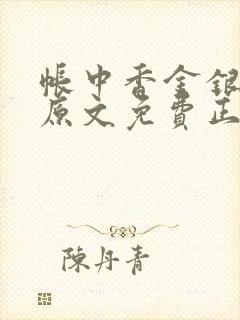 帳中香金銀
原文免費正
陳丹青